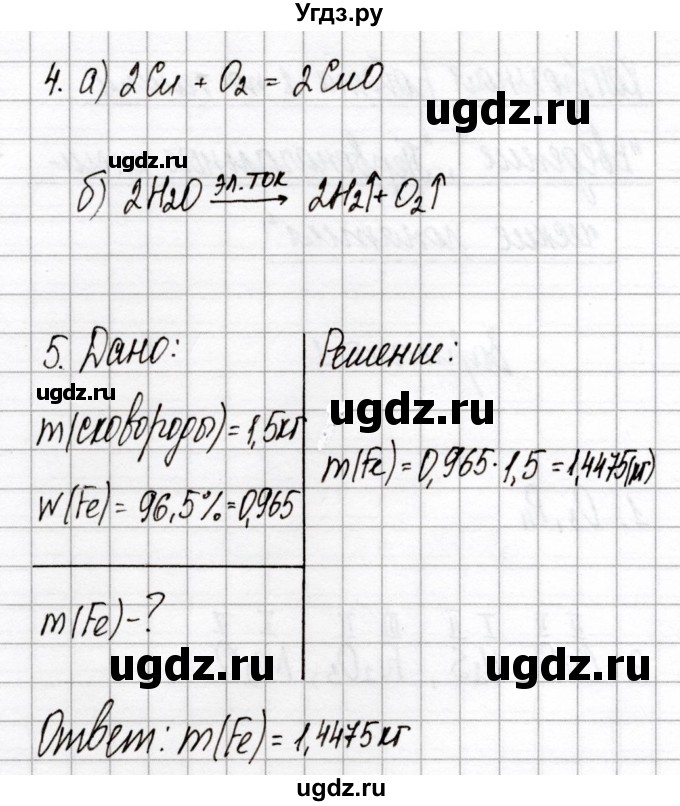 Угдз.ру
4. а) 2Cu + O₂ = 2CuO
ugdz.ru
ugdz.ru
б) 2H₂O эл.ток → 2H₂↑ + O₂↑
5. Дано:
Решение:
ugdz.ru
ugdz.ru
m(сковороды) = 1,5кг
m(Fe) = 0,965 · 1,5 = 1,4475(кг)
w(Fe) = 96,5% = 0,965
m(Fe) - ?
ugdz.ru
ugdz.ru
Ответ: m(Fe) = 1,4475кг
ugdz.ru